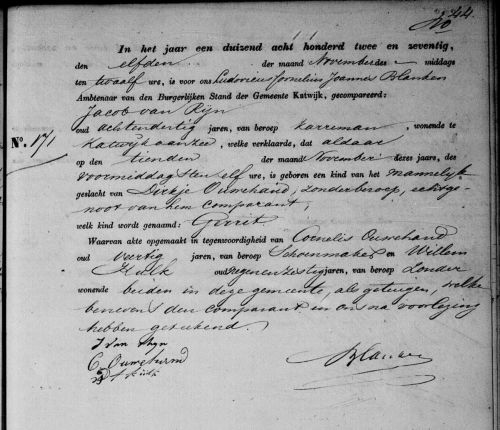 44
No
In het jaar een duizend acht honderd twee en zeventig,
den elfden der maand November des middags
ten twaalf ure, is voor ons Ludovicus Cornelius Joannes Blanken
Ambtenaar van den Burgerlijken Stand der Gemeente Katwijk, gecompareerd:
Jacob van Rijn
oud achtendertig jaren, van beroep karreman, wonende te
Katwijk aan zee, welke verklaarde, dat aldaar
op den tienden der maand November dezes jaars, des
voormiddags ten elf ure, is geboren een kind van het mannelijk
geslacht van Dirkje Ouwehand, zonder beroep, echtge-
noot van hem comparant,
welk kind wordt genaamd: Gerrit
Waarvan akte opgemaakt in tegenwoordigheid van Cornelis Ouwehand
oud veertig jaren, van beroep Schoenmaker en Willem
Kulk oud negenenzestig jaren, van beroep zonder
wonende beiden in deze gemeente, als getuigen, welke
benevens den comparant en ons na voorlezing
hebben geteekend.
J van Rijn
C Ouwehand
Kulk
Blanken
No. 171